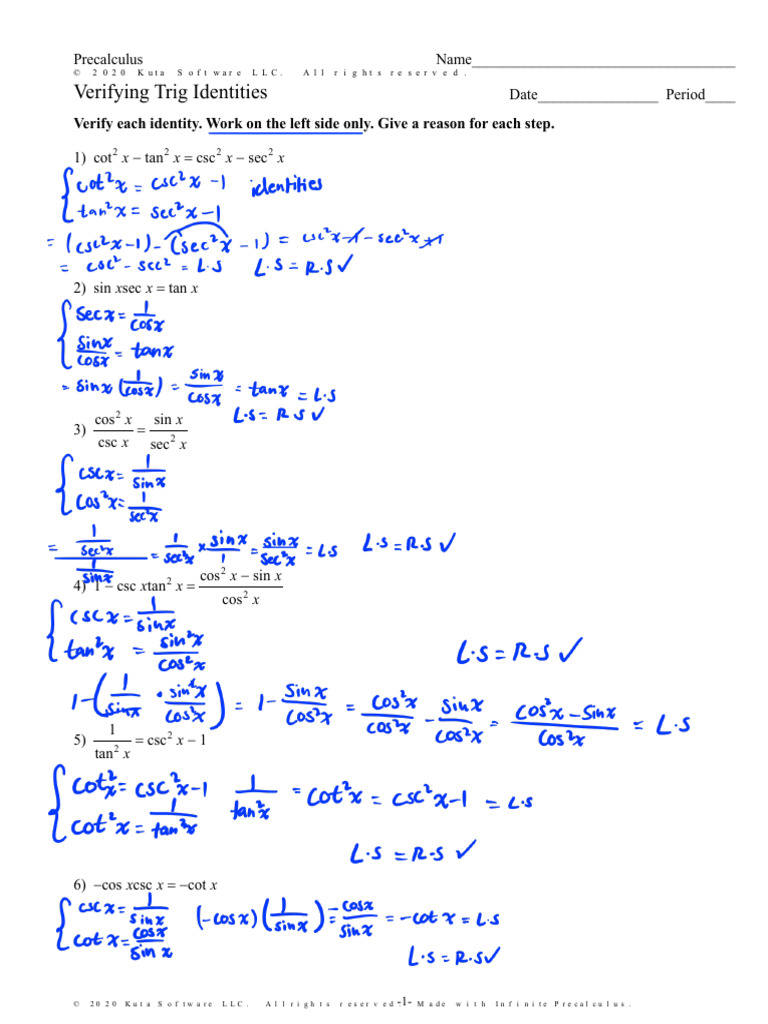 Precalculus Name
© 2020 Kuta Software LLC. All rights reserved.
Verifying Trig Identities Date Period
Verify each identity. Work on the left side only. Give a reason for each step.
1) cot² x − tan² x = csc² x − sec² x
cot²x = csc²x − 1 identities
tan²x = sec²x − 1
= (csc²x−1) − (sec²x − 1) = csc²x − 1 − sec²x + 1
= csc² − sec² = L.S L.S = R.S ✓
2) sin xsec x = tan x
sec x = 1/cosx
sinx/cosx = tanx
= sinx (1/cosx) = sinx/cosx = tanx = L.S
L.S = R.S ✓
3) cos² x / csc x = sin x / sec² x
cscx = 1/sinx
cos²x = 1/sec²x
= (1/sec²x)/(1/sinx) = 1/sec²x × sinx/1 = sinx/sec²x = LS L.S = R.S ✓
4) 1 − csc xtan² x = (cos² x − sin x)/cos² x
cscx = 1/sinx
tan²x = sin²x/cos²x
L.S = R.S ✓
1 − (1/sinx · sin²x/cos²x) = 1 − sinx/cos²x = cos²x/cos²x − sinx/cos²x = (cos²x − sinx)/cos²x = L.S
5) 1/tan² x = csc² x − 1
cot²x = csc²x − 1 1/tan²x = cot²x = csc²x − 1 = L.S
cot²x = 1/tan²x
L.S = R.S ✓
6) −cos xcsc x = −cot x
cscx = 1/sinx (−cosx)(1/sinx) = −cosx/sinx = −cot x = L.S
cotx = cosx/sinx
L.S = R.S ✓
© 2020 Kuta Software LLC. All rights reserved. -1- Made with Infinite Precalculus.